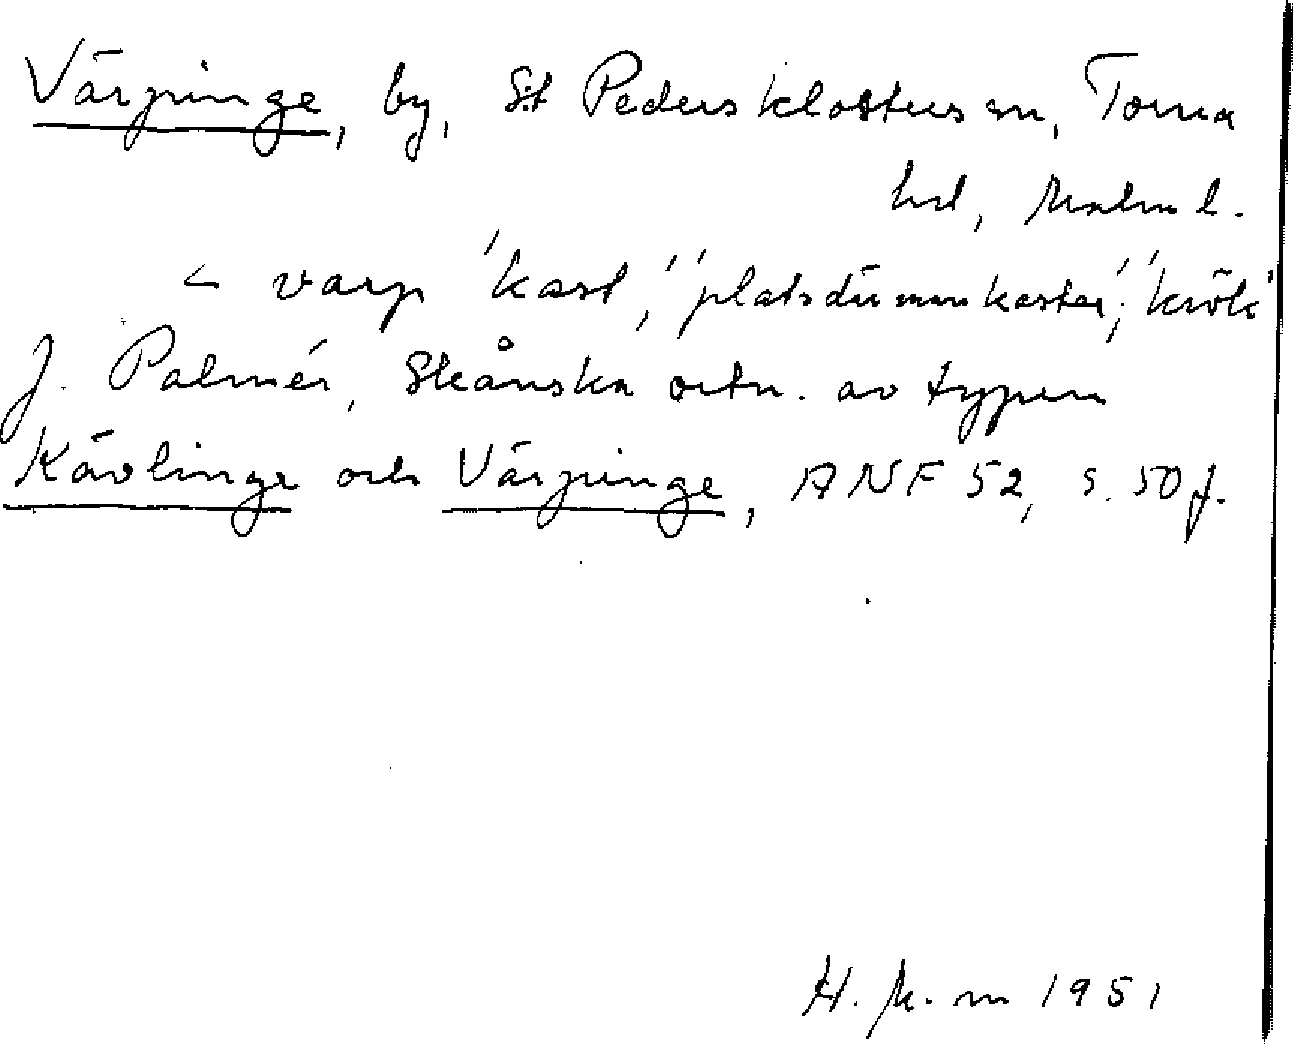 Värpinge, by, St Peders klosters sn, Torna
hd, Malm l.
< varp 'kast', 'plats där man kastar', 'krök'
J. Palmér, Skånska ortn. av typen
Kävlinge och Värpinge, ANF 52, s. 50 f.
H. k. m 1951